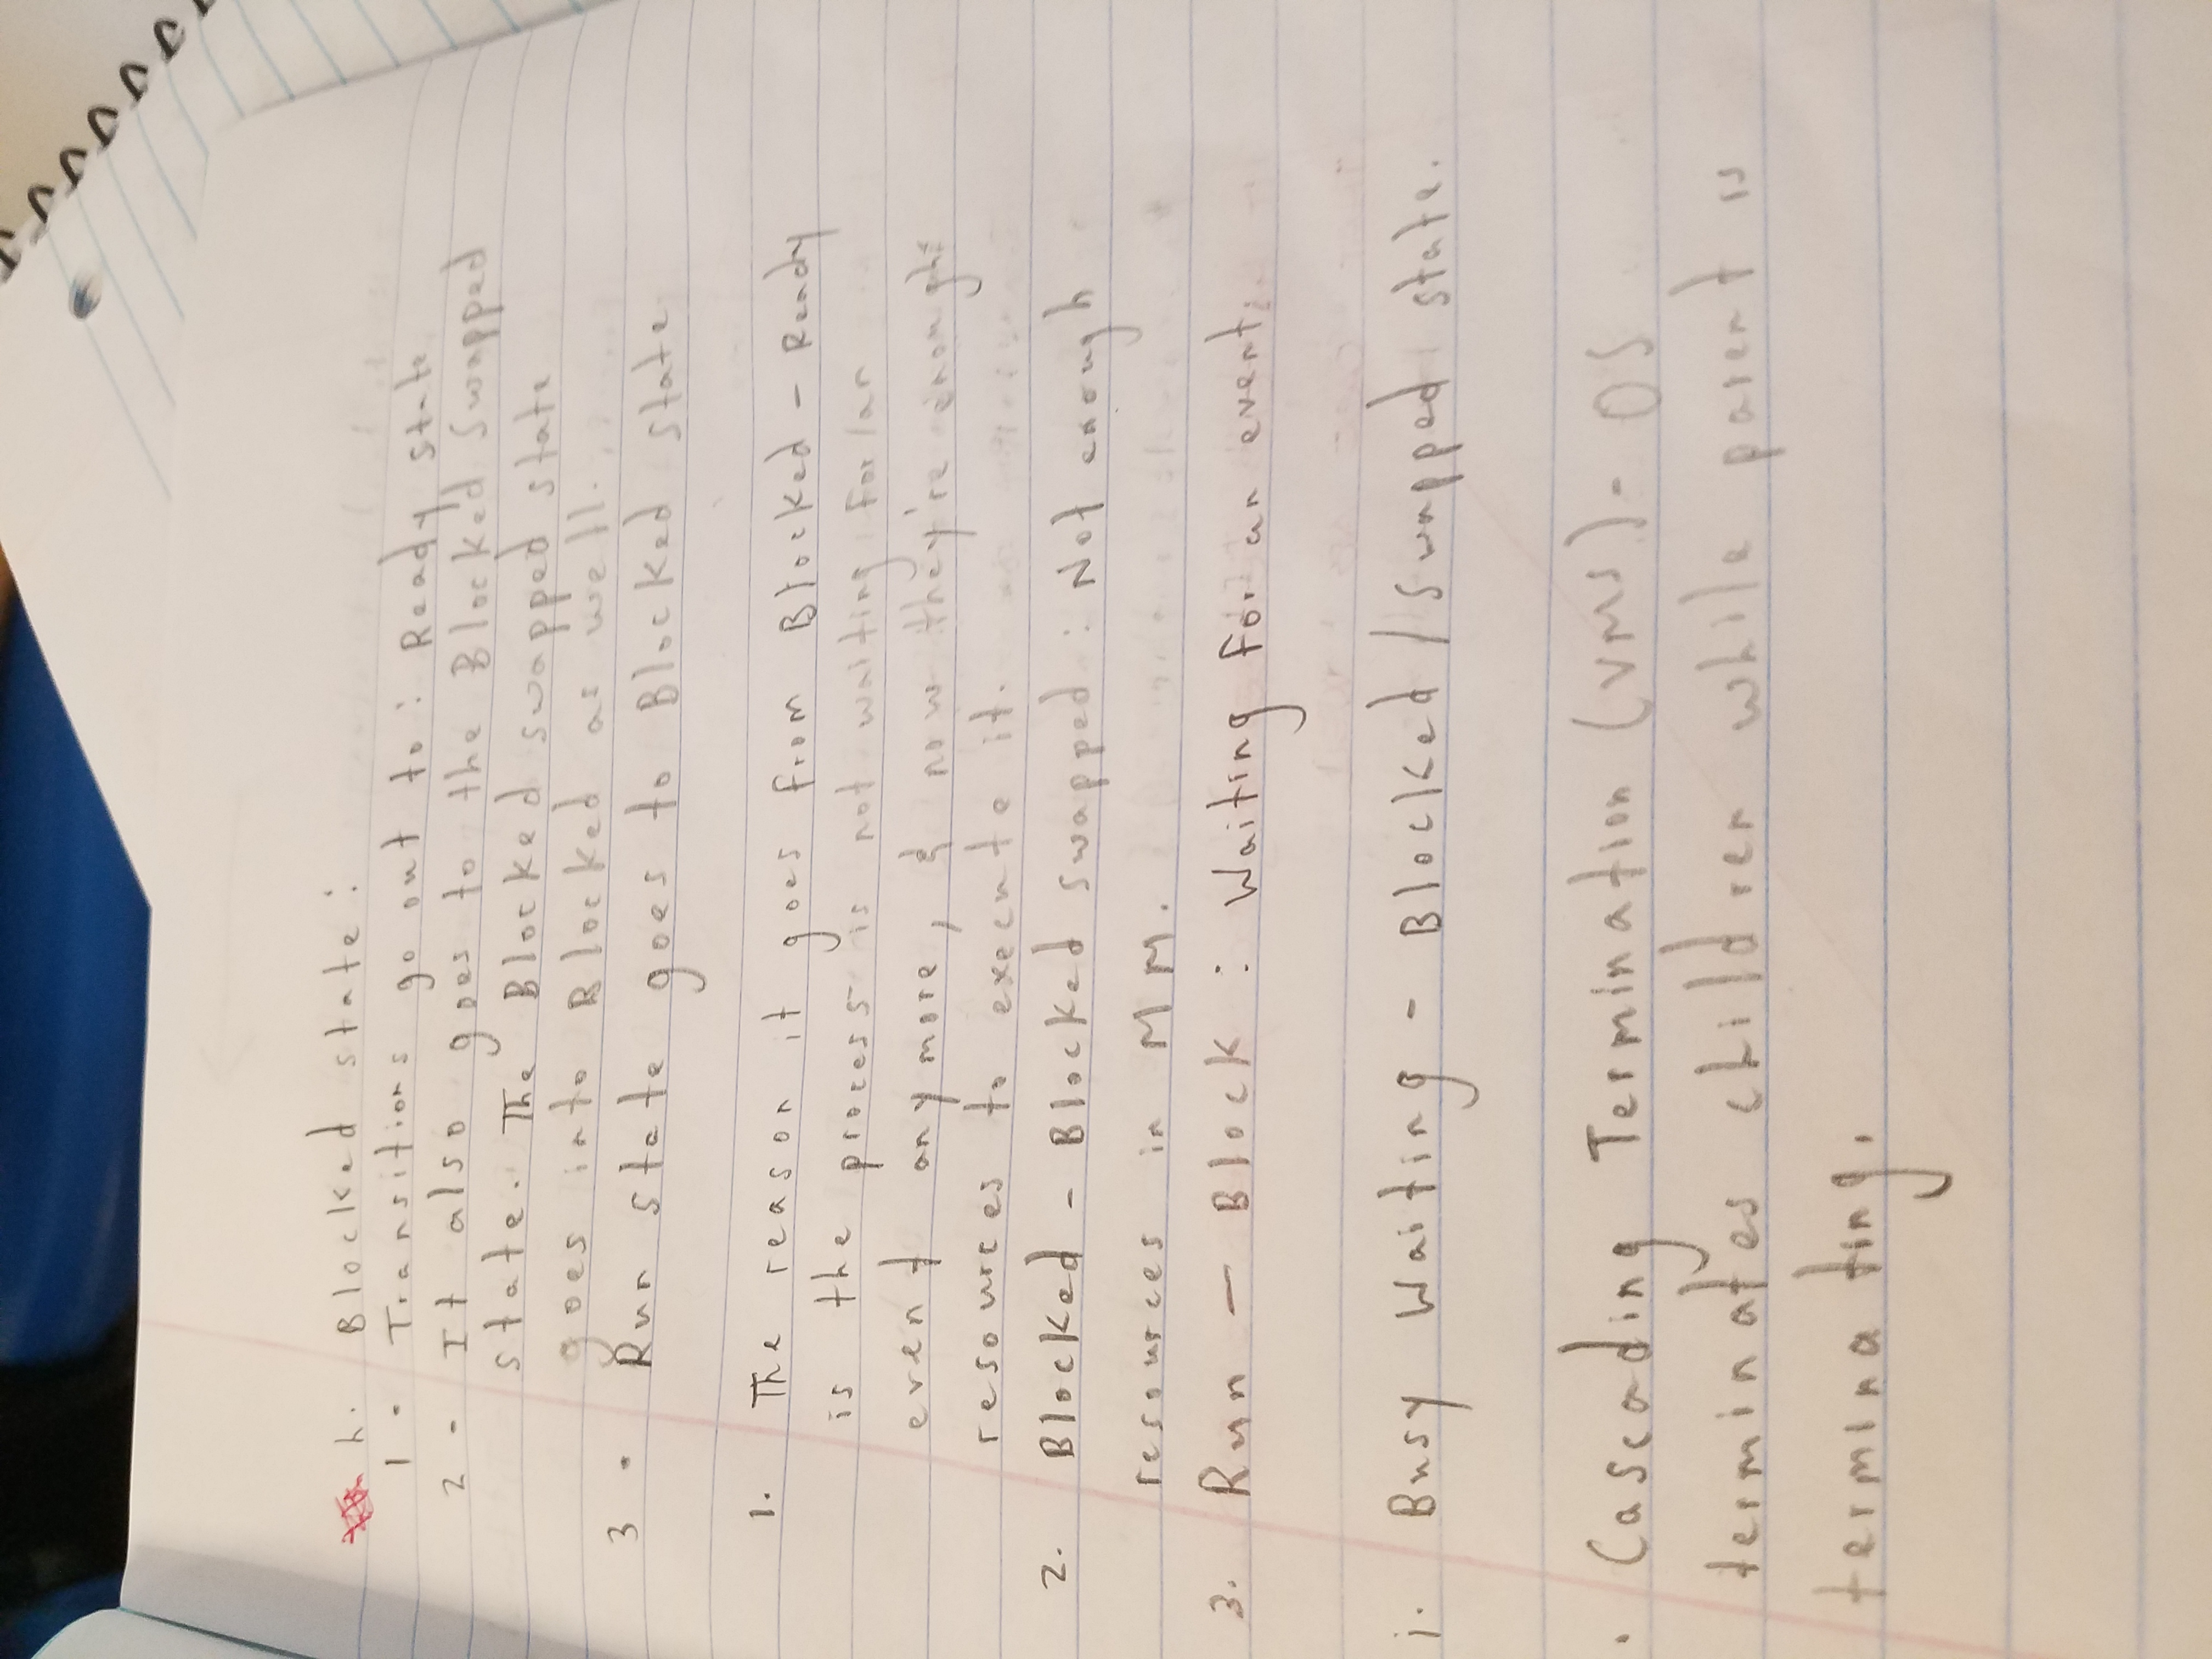 h. Blocked state:
1 - Transitions go out to: Ready state
2 - It also goes to the Blocked Swapped
state. The Blocked swapped state
goes into Blocked as well.
3 - Run state goes to Blocked state
1. The reason it goes from Blocked - Ready
is the process is not waiting for/an
event anymore, & now they're enough
resources to execute it.
2. Blocked - Blocked swapped : Not enough
resources in MM.
3. Run - Block : Waiting for an event.
i. Busy Waiting - Blocked / Swapped state.
. Cascading Termination (VMS) - OS
terminates children while parent is
terminating.